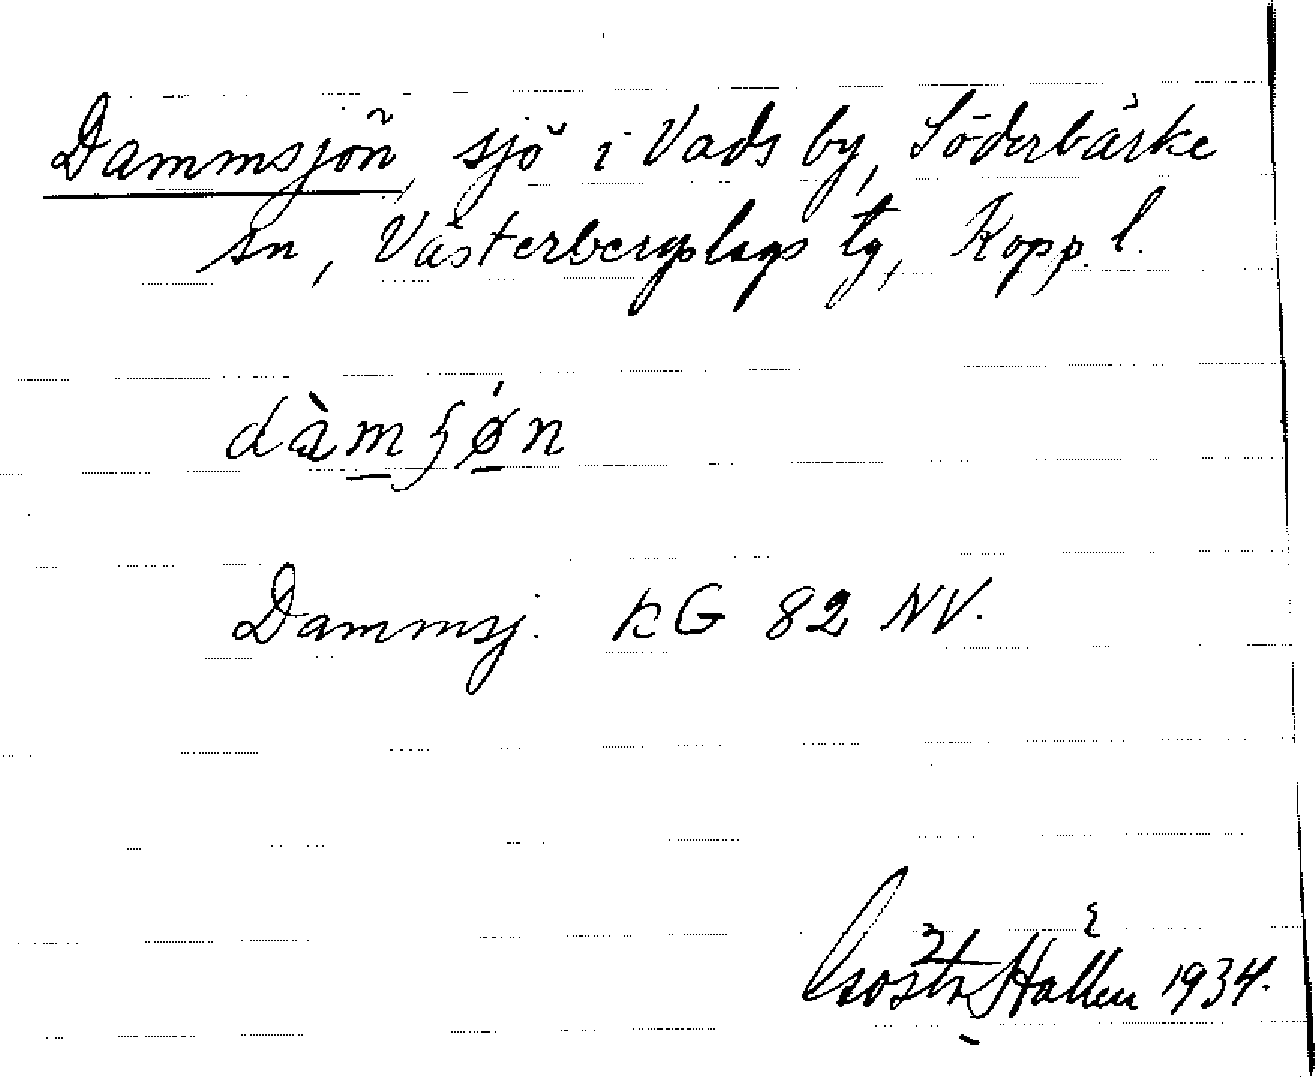 Dammsjön, sjö i Vads by, Söderbärke
sn, Västerbergslags tg, Kopp. l.
dàmʃø̀n
Dammsj. KG 82 NV.
Gösta Hallén 1934.